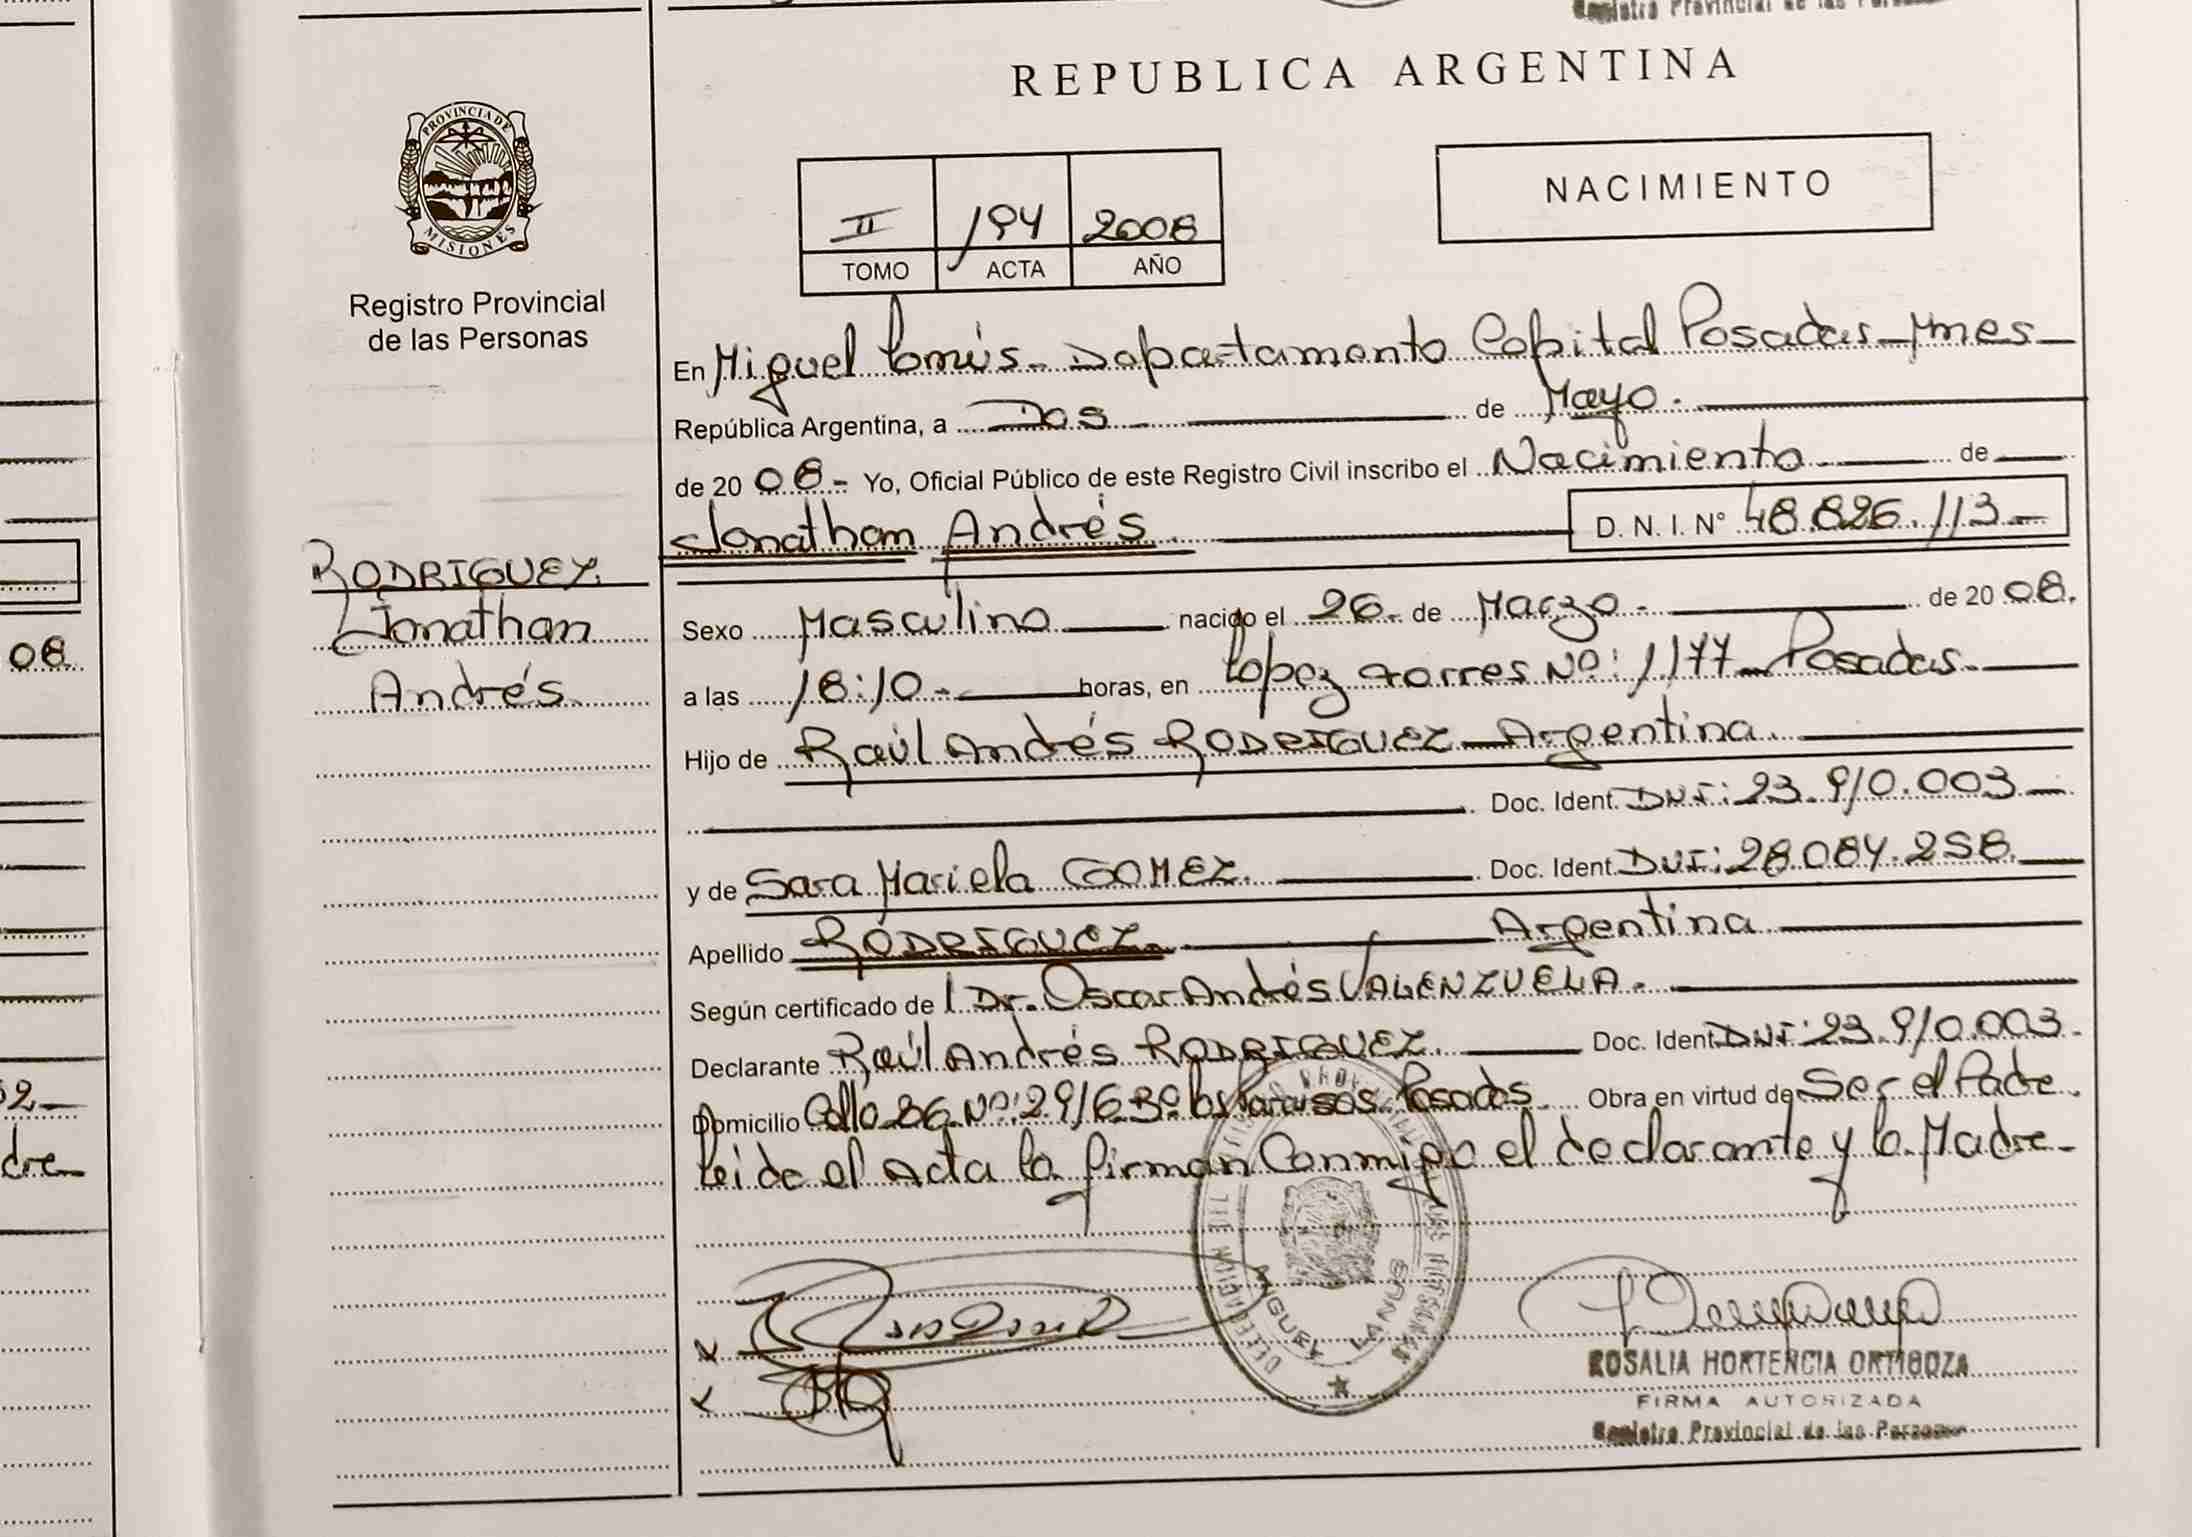 Registro Provincial de las Personas
REPUBLICA ARGENTINA
PROVINCIA DE
MISIONES
Registro Provincial
de las Personas
NACIMIENTO
II 194 2008
TOMO ACTA AÑO
En Miguel Lanús - Departamento Capital Posadas - Mnes -
República Argentina, a Dos de Mayo.
de 2008 - Yo, Oficial Público de este Registro Civil inscribo el Nacimiento de
Jonathan Andrés D. N. I. N° 48.826.113 -
RODRIGUEZ
Jonathan
Andrés
Sexo Masculino nacido el 26 - de Marzo - de 2008.
a las 18:10 - horas, en Lopez torres Nº: 1177 - Posadas -
Hijo de Raúl Andrés RODRIGUEZ - Argentina.
Doc. Ident. DNI: 23.910.003 -
y de Sara Mariela GOMEZ. Doc. Ident. DNI: 28.084.258.
Apellido RODRIGUEZ. Argentina
Según certificado de l Dr. Oscar Andrés VALENZUELA.
Declarante Raúl Andrés RODRIGUEZ. Doc. Ident DNI: 23.910.003.
Domicilio Calle 86 Nº: 2916 Bº los Paraisos. Posadas Obra en virtud de Ser el Padre.
Leida el Acta la firman Conmigo el declarante y la Madre -
LANUS
ROSALIA HORTENCIA ORTIGOZA
FIRMA AUTORIZADA
Registro Provincial de las Personas
08
dre